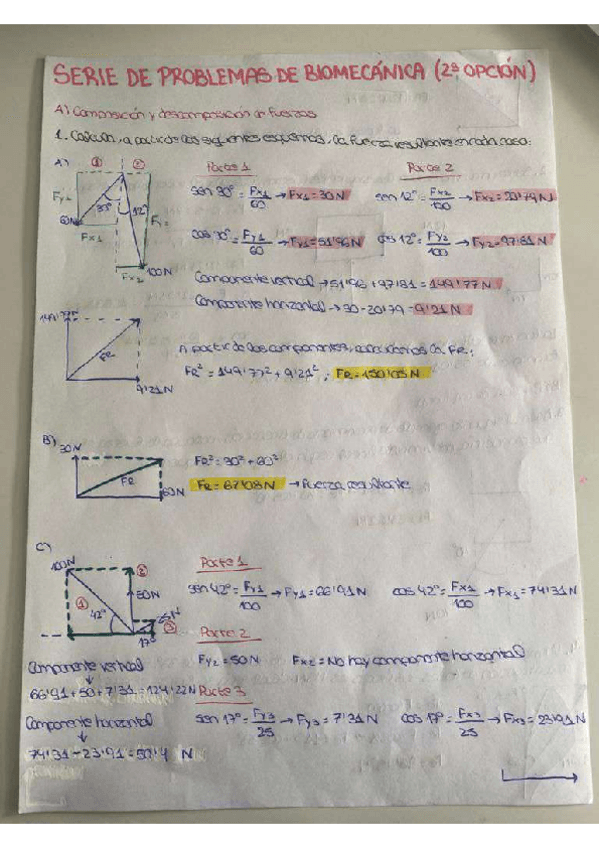 SERIE DE PROBLEMAS DE BIOMECÁNICA (2ª OPCIÓN)
A) Composición y descomposición de fuerzas
1. Calcula, a partir de los siguientes esquemas, la fuerza resultante en cada caso:
A) ① ② Parte 1 Parte 2
sen 30° = Fx1/60 → Fx1 = 30 N sen 12° = Fx2/100 → Fx2 = 20'79 N
Fy1 30° 12° 60N Fx1
cos 30° = Fy1/60 → Fy1 = 51'96 N cos 12° = Fy2/100 → Fy2 = 97'81 N
Fx2 100N
Componente vertical → 51'96 + 97'81 = 149'77 N
Componente horizontal → 30 - 20'79 = 9'21 N
FR 9'21 N
A partir de los componentes, calculamos la FR:
FR² = 149'77² + 9'21² ; FR = 150'05 N
B)
30N FR 60N
FR² = 30² + 60²
FR = 67'08 N → Fuerza resultante
C)
100N ② 50N ① 42° 25N ③ 17°
Parte 1
sen 42° = Fy1/100 → Fy1 = 66'91 N cos 42° = Fx1/100 → Fx1 = 74'31 N
Parte 2
Fy2 = 50N Fx2 = No hay componente horizontal
Componente vertical
66'91 + 50 + 7'31 = 124'22 N
Parte 3
sen 17° = Fy3/25 → Fy3 = 7'31 N cos 17° = Fx3/25 → Fx3 = 23'91 N
Componente horizontal
74'31 - 23'91 = 50'4 N